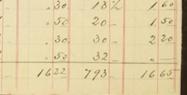 .30 18 1/2 1.60
.50 20 1.50
.30 30 2.20
.50 32 —
1622 793 1665